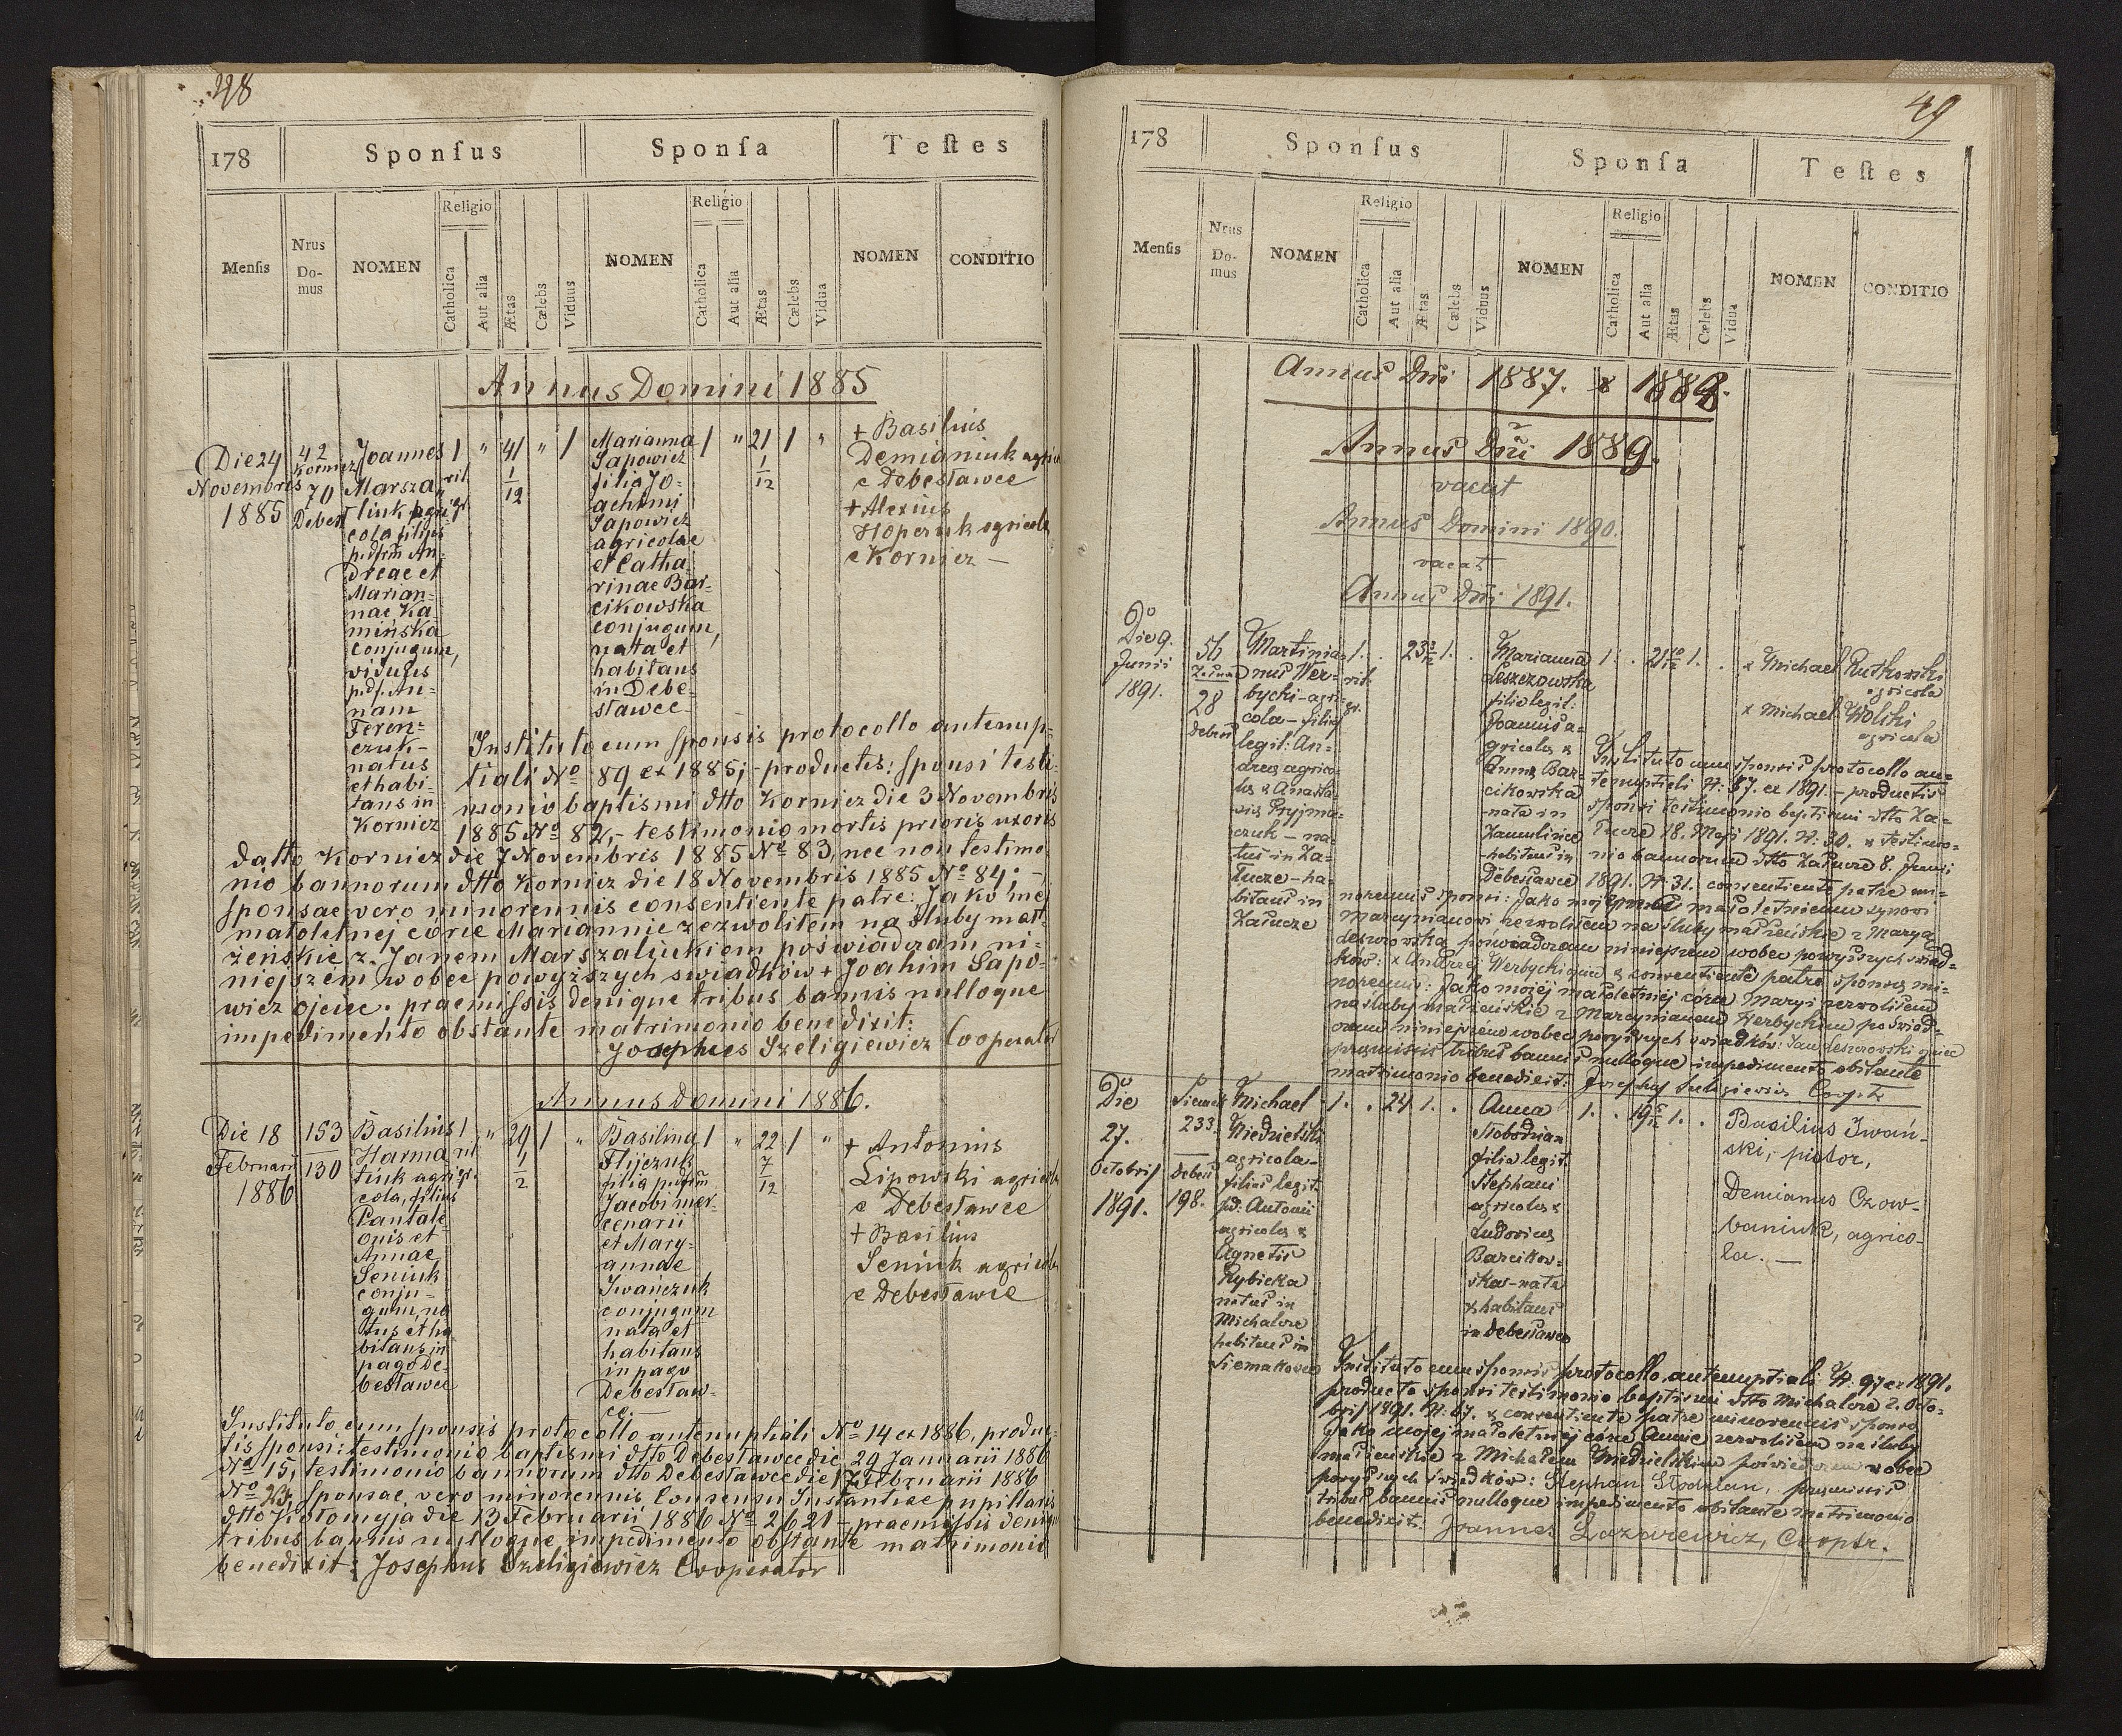 48
178
Sponſus
Sponſa
Teſtes
Menſis
Nrus Do-mus
NOMEN
Religio
Catholica
Aut alia
Ætas
Cælebs
Viduus
NOMEN
Religio
Catholica
Aut alia
Ætas
Cælebs
Vidua
NOMEN
CONDITIO
Annus Domini 1885
Die 24
Novembris
1885
42
Kornicz
70
Debesł
Joannes
Marsza-
liuk agri-
cola filius
p. dfti An-
dreae et
Marian-
nae Ka
mińska
conjugum,
viduus
p. df. An-
nam
Feren-
czuk-
natus
et habi-
tans in
Kornicz
1 " 41 1/12 " 1
rit. gr.
Marianna
Sapowicz
filia Jo-
achimi
Sapowicz
agricolae
et Catha-
rinae Bar-
cikowska
conjugum,
nata et
habitans
in Debe-
sławce
1 " 21 1/12 1 "
+ Basilius
Demianiuk agric
e Debesławce
+ Alexius
Hoperuk agricola
e Kornicz –
Instituto cum sponsis protocollo antenup-
tiali No 89 ex 1885; - productis: sponsi testi-
monio baptismi dtto Kornicz die 3 Novembris
1885 No 82, - testimonio mortis prioris uxoris
datto Kornicz die 7 Novembris 1885 No 83, nec non testimo
nio bannorum dtto Kornicz die 18 Novembris 1885 No 84. -
sponsae vero minorennis consentiente patre: Jako mej
małoletnej córce Mariannie zezwoliłem na śluby mał-
żeńskie z Janem Marszaliukiem poświadczam ni-
niejszém wobec powyższych świadków + Joahim Sapo-
wicz ojciec. praemissis denique tribus bannis nulloque
impedimento obstante matrimonio benedixit:
Josephus Szeligiewicz Cooperator
Annus Domini 1886.
Die 18
Februarii
1886
153
130
Basilius
Harma
tiuk agri
cola, filius
Pantale
onis et
Annae
Seniuk
conju-
gum, na
tus et ha
bitans in
pago De-
besławce
1 " 29 1/2 1 "
rit. gr.
Basilina
Flijczuk
filia p. dfti
Jacobi mer-
cenarii
et Mary-
annae
Iwańczuk
conjugum
nata et
habitans
in pago
Debesław-
ce.
1 " 22 7/12 1 "
+ Antonius
Lipowski agricola
e Debesławce
+ Basilius
Seniuk agricola
e Debesławce
Instituto cum sponsis protocollo antenuptiali No 14 ex 1886, produc-
tis sponsi: testimonio baptismi dtto Debesławce die 29 Januarii 1886
No 15, testimonio bannorum dtto Debesławce die 17 Februarii 1886
No 23, sponsae vero minorennis Consensu Instantiae pupillaris
dtto Kołomyja die 13 Februarii 1886 No 2621 – praemissis denique
tribus bannis nulloque impedimento obstante matrimonio
benedixit: Josephus Szeligiewicz Cooperator
49
178
Sponſus
Sponſa
Teſtes
Menſis
Nrus Do-mus
NOMEN
Religio
Catholica
Aut alia
Ætas
Cælebs
Viduus
NOMEN
Religio
Catholica
Aut alia
Ætas
Cælebs
Vidua
NOMEN
CONDITIO
Annus Dni 1887. & 1888.
Annus Dni 1889.
vacat
Annus Domini 1890.
vacat
Annus Dni 1891.
Die 9.
Junii
1891.
56
Załucze
28
Debesł
Martinia-
nus Wer-
bycki - agri-
cola - filius
legit: An-
dreae agrico-
lae & Anasta-
siae Pryjma-
czuk - na-
tus in Za-
łucze - ha-
bitans in
Załucze
1. . 23 3/12 1. .
rit. gr.
Marianna
Leszczowska
filia legit:
Joannis a-
gricolae &
Annae Bar-
cikowska
- nata in
Zamulińce
- habitans in
Debesławce
1. . 21 10/12 1. .
x Michael Rutkowski
agricola
x Michael Wolski
agricola
Instituto cum sponsis protocollo an-
tenuptiali N. 87. ex 1891. - productis
sponsi testimonio baptismi dtto Za-
łucze 18. Maji 1891. N. 30. & testimo-
nio bannorum dtto Załucze 8. Junii
1891. N. 31. consentiente patre mi-
norennis sponsi: Jako mojemu małoletniemu synowi
Marcynianowi zezwoliłem na śluby małżeńskie z Maryą
Leszczowską poświadczam niniejszem wobec powyższych świad-
ków: x Andrzej Werbycki ojciec & consentiente patre sponsae mi-
norennis: Jako mojéj małoletniéj córce Maryi zezwoliłem
na śluby małżeńskie z Marcynianem Werbyckim poświad-
czam niniejszem wobec powyższych świadków: Jan Leszczowski ojciec
praemissis tribus bannis nulloque impedimento obstante
matrimonio benedixit: Josephus Szeligiewicz Coop.
Die
27.
Octobris
1891.
Siemak
233.
Debesł
198.
Michael
Niedzielski
agricola -
filius legit.
pd: Antonii
agricolae &
Agnetis
Rybicka
natus in
Michalcze
habitans in
Siemakowce
1. . 24 1. .
Anna
Słobodzian
filia legit.
Stephani
agricolae &
Ludovicae
Barcikow-
ska - nata
& habitans
in Debesławce
1. . 19 5/12 1. .
Basilius Iwań-
ski, pictor,
Demianus Czow-
baniuk, agrico-
la. –
Instituto cum sponsis protocollo antenuptiali N. 97 ex 1891.
producto sponsi testimonio baptismi dtto Michalcze 2. Octo-
bris 1891. N. 67. & consentiente patre minorennis sponsae
Jako mojej małoletniej córce Annie zezwoliłem na śluby
małżeńskie z Michałem Niedzielskim poświadczam wobec
powyższych świadków: Stephan Słobodzian, praemissis
tribus bannis nulloque impedimento obstante matrimonio
benedixit. Joannes Lazarewicz, Cooptr.